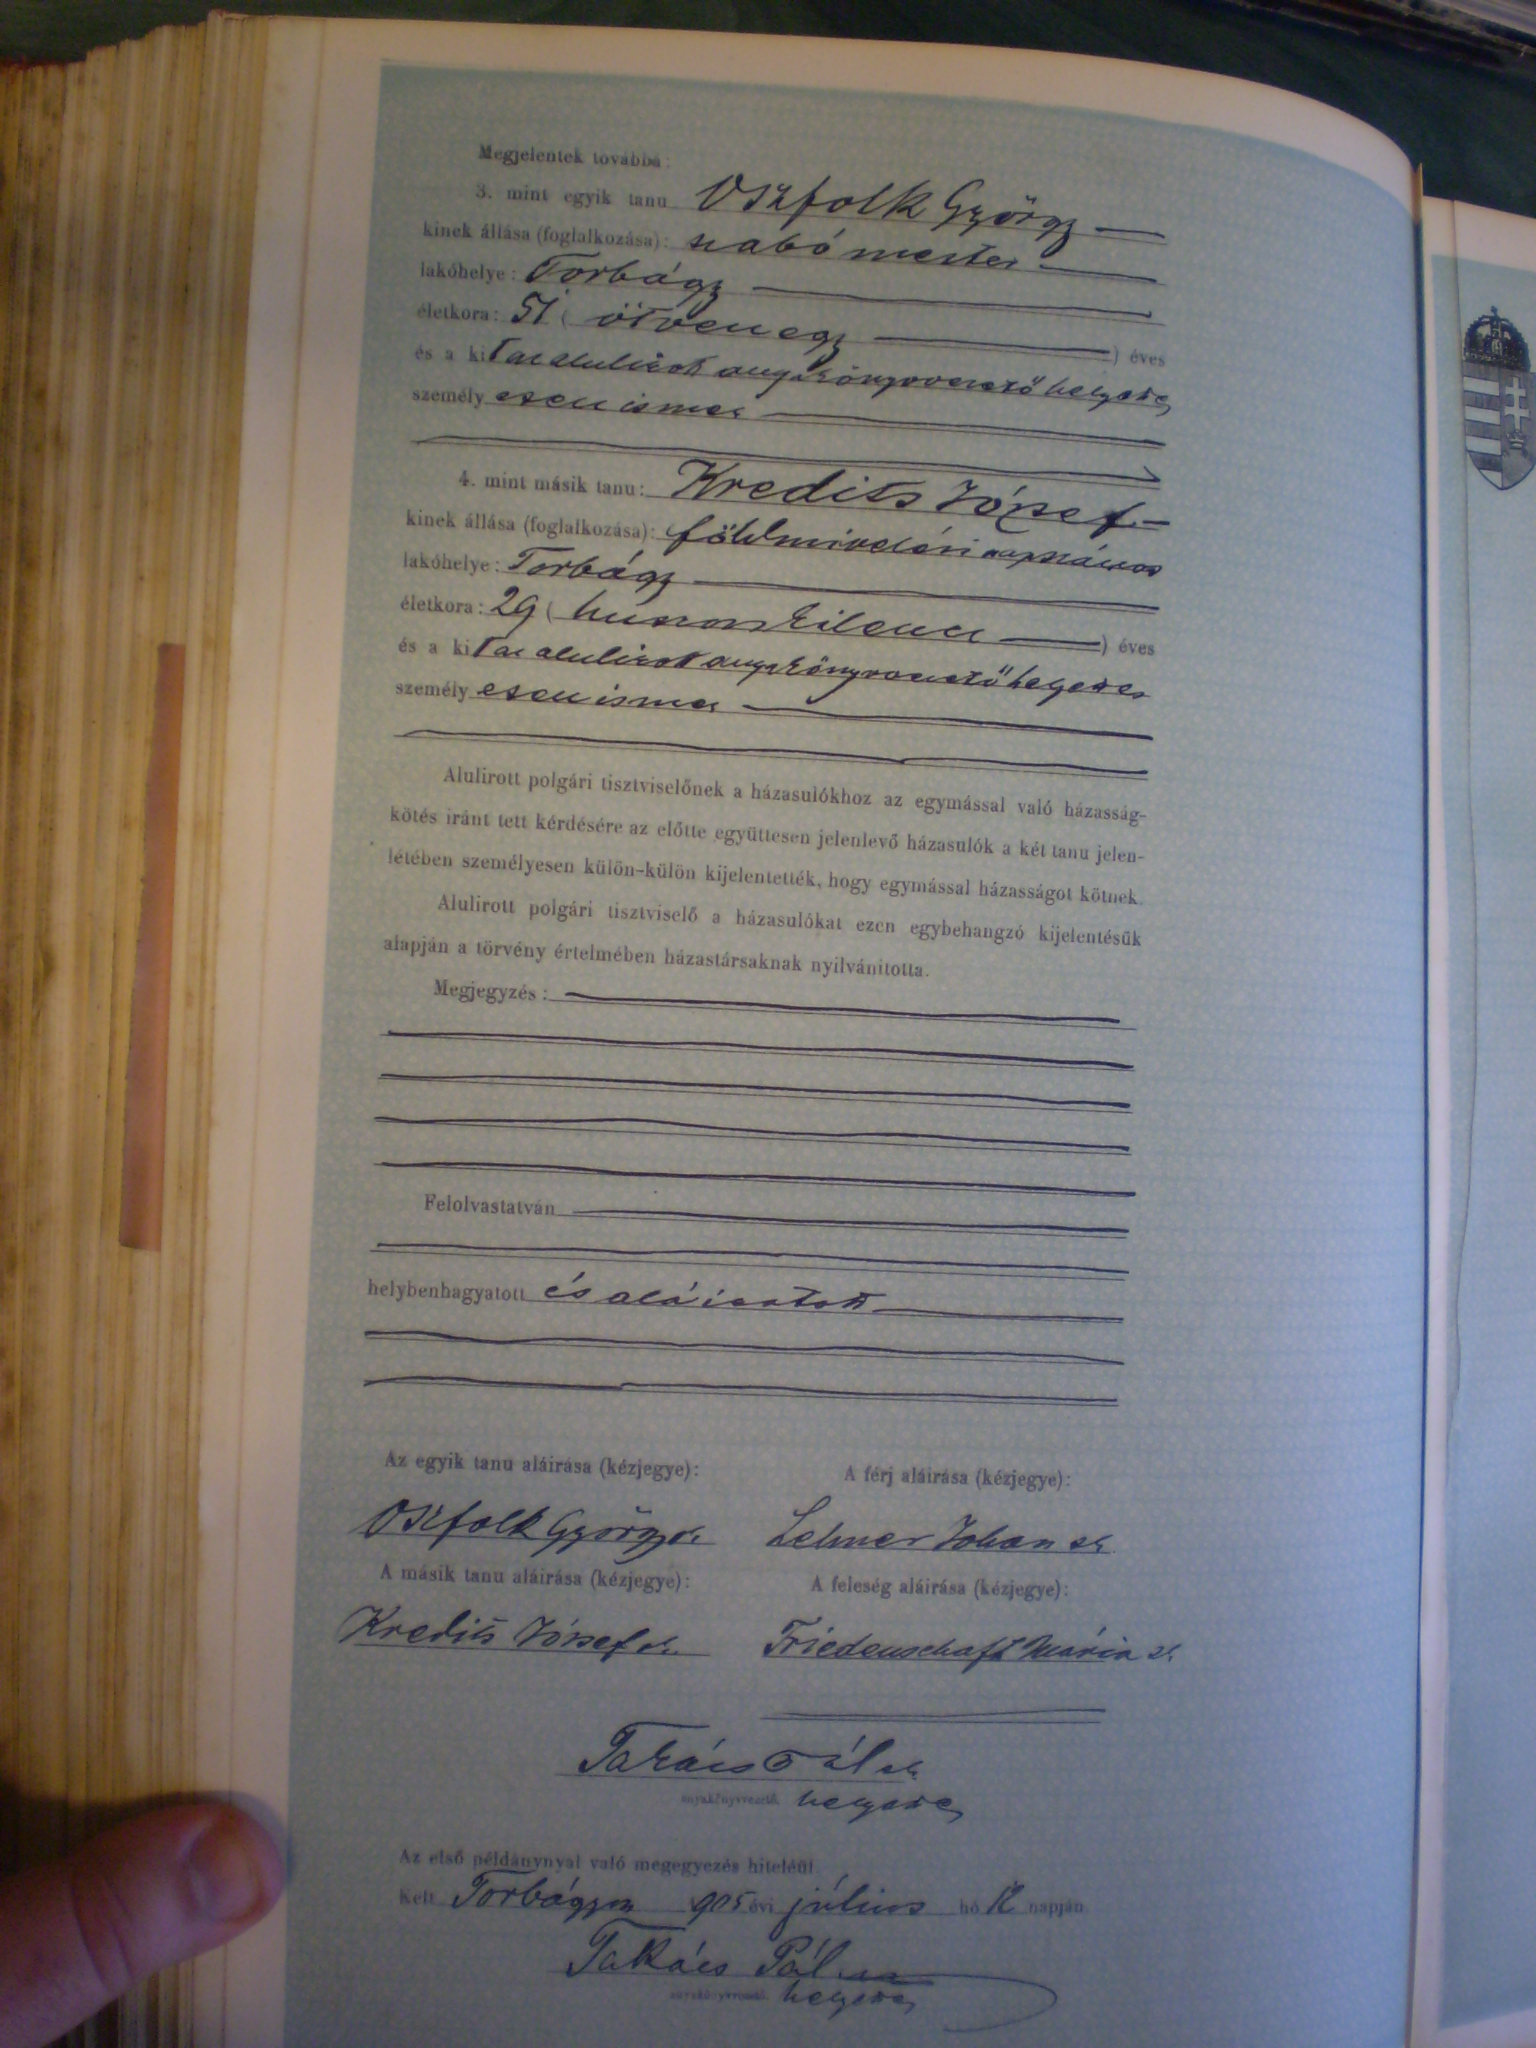 Megjelentek továbbá:
3. mint egyik tanu Oszfolk György
kinek állása (foglalkozása): szabó mester
lakóhelye: Torbágy
életkora: 51 ( ötvenegy ) éves
és a kit az alulirott anyakönyvvezető helyettes
személyesen ismer
4. mint másik tanu: Kredits József
kinek állása (foglalkozása): földmivelési napszámos
lakóhelye: Torbágy
életkora: 29 ( huszonkilencz ) éves
és a kit az alulirott anyakönyvvezető helyettes
személyesen ismer
Alulirott polgári tisztviselőnek a házasulókhoz az egymással való házasság-
kötés iránt tett kérdésére az előtte együttesen jelenlevő házasulók a két tanu jelen-
létében személyesen külön-külön kijelentették, hogy egymással házasságot kötnek.
Alulirott polgári tisztviselő a házasulókat ezen egybehangzó kijelentésük
alapján a törvény értelmében házastársaknak nyilvánitotta.
Megjegyzés:
Felolvastatván
helybenhagyatott és aláiratott
Az egyik tanu aláirása (kézjegye):
A férj aláirása (kézjegye):
Oszfolk György sk.
Lehner Johan sk.
A másik tanu aláirása (kézjegye):
A feleség aláirása (kézjegye):
Kredits József sk.
Friedenschaft Mária sk.
Takács Pál sk.
anyakönyvvezető. helyettes
Az első példánynyal való megegyezés hiteléül
Kelt Torbágyon 905 évi július hó napján
Takács Pál
anyakönyvvezető. helyettes